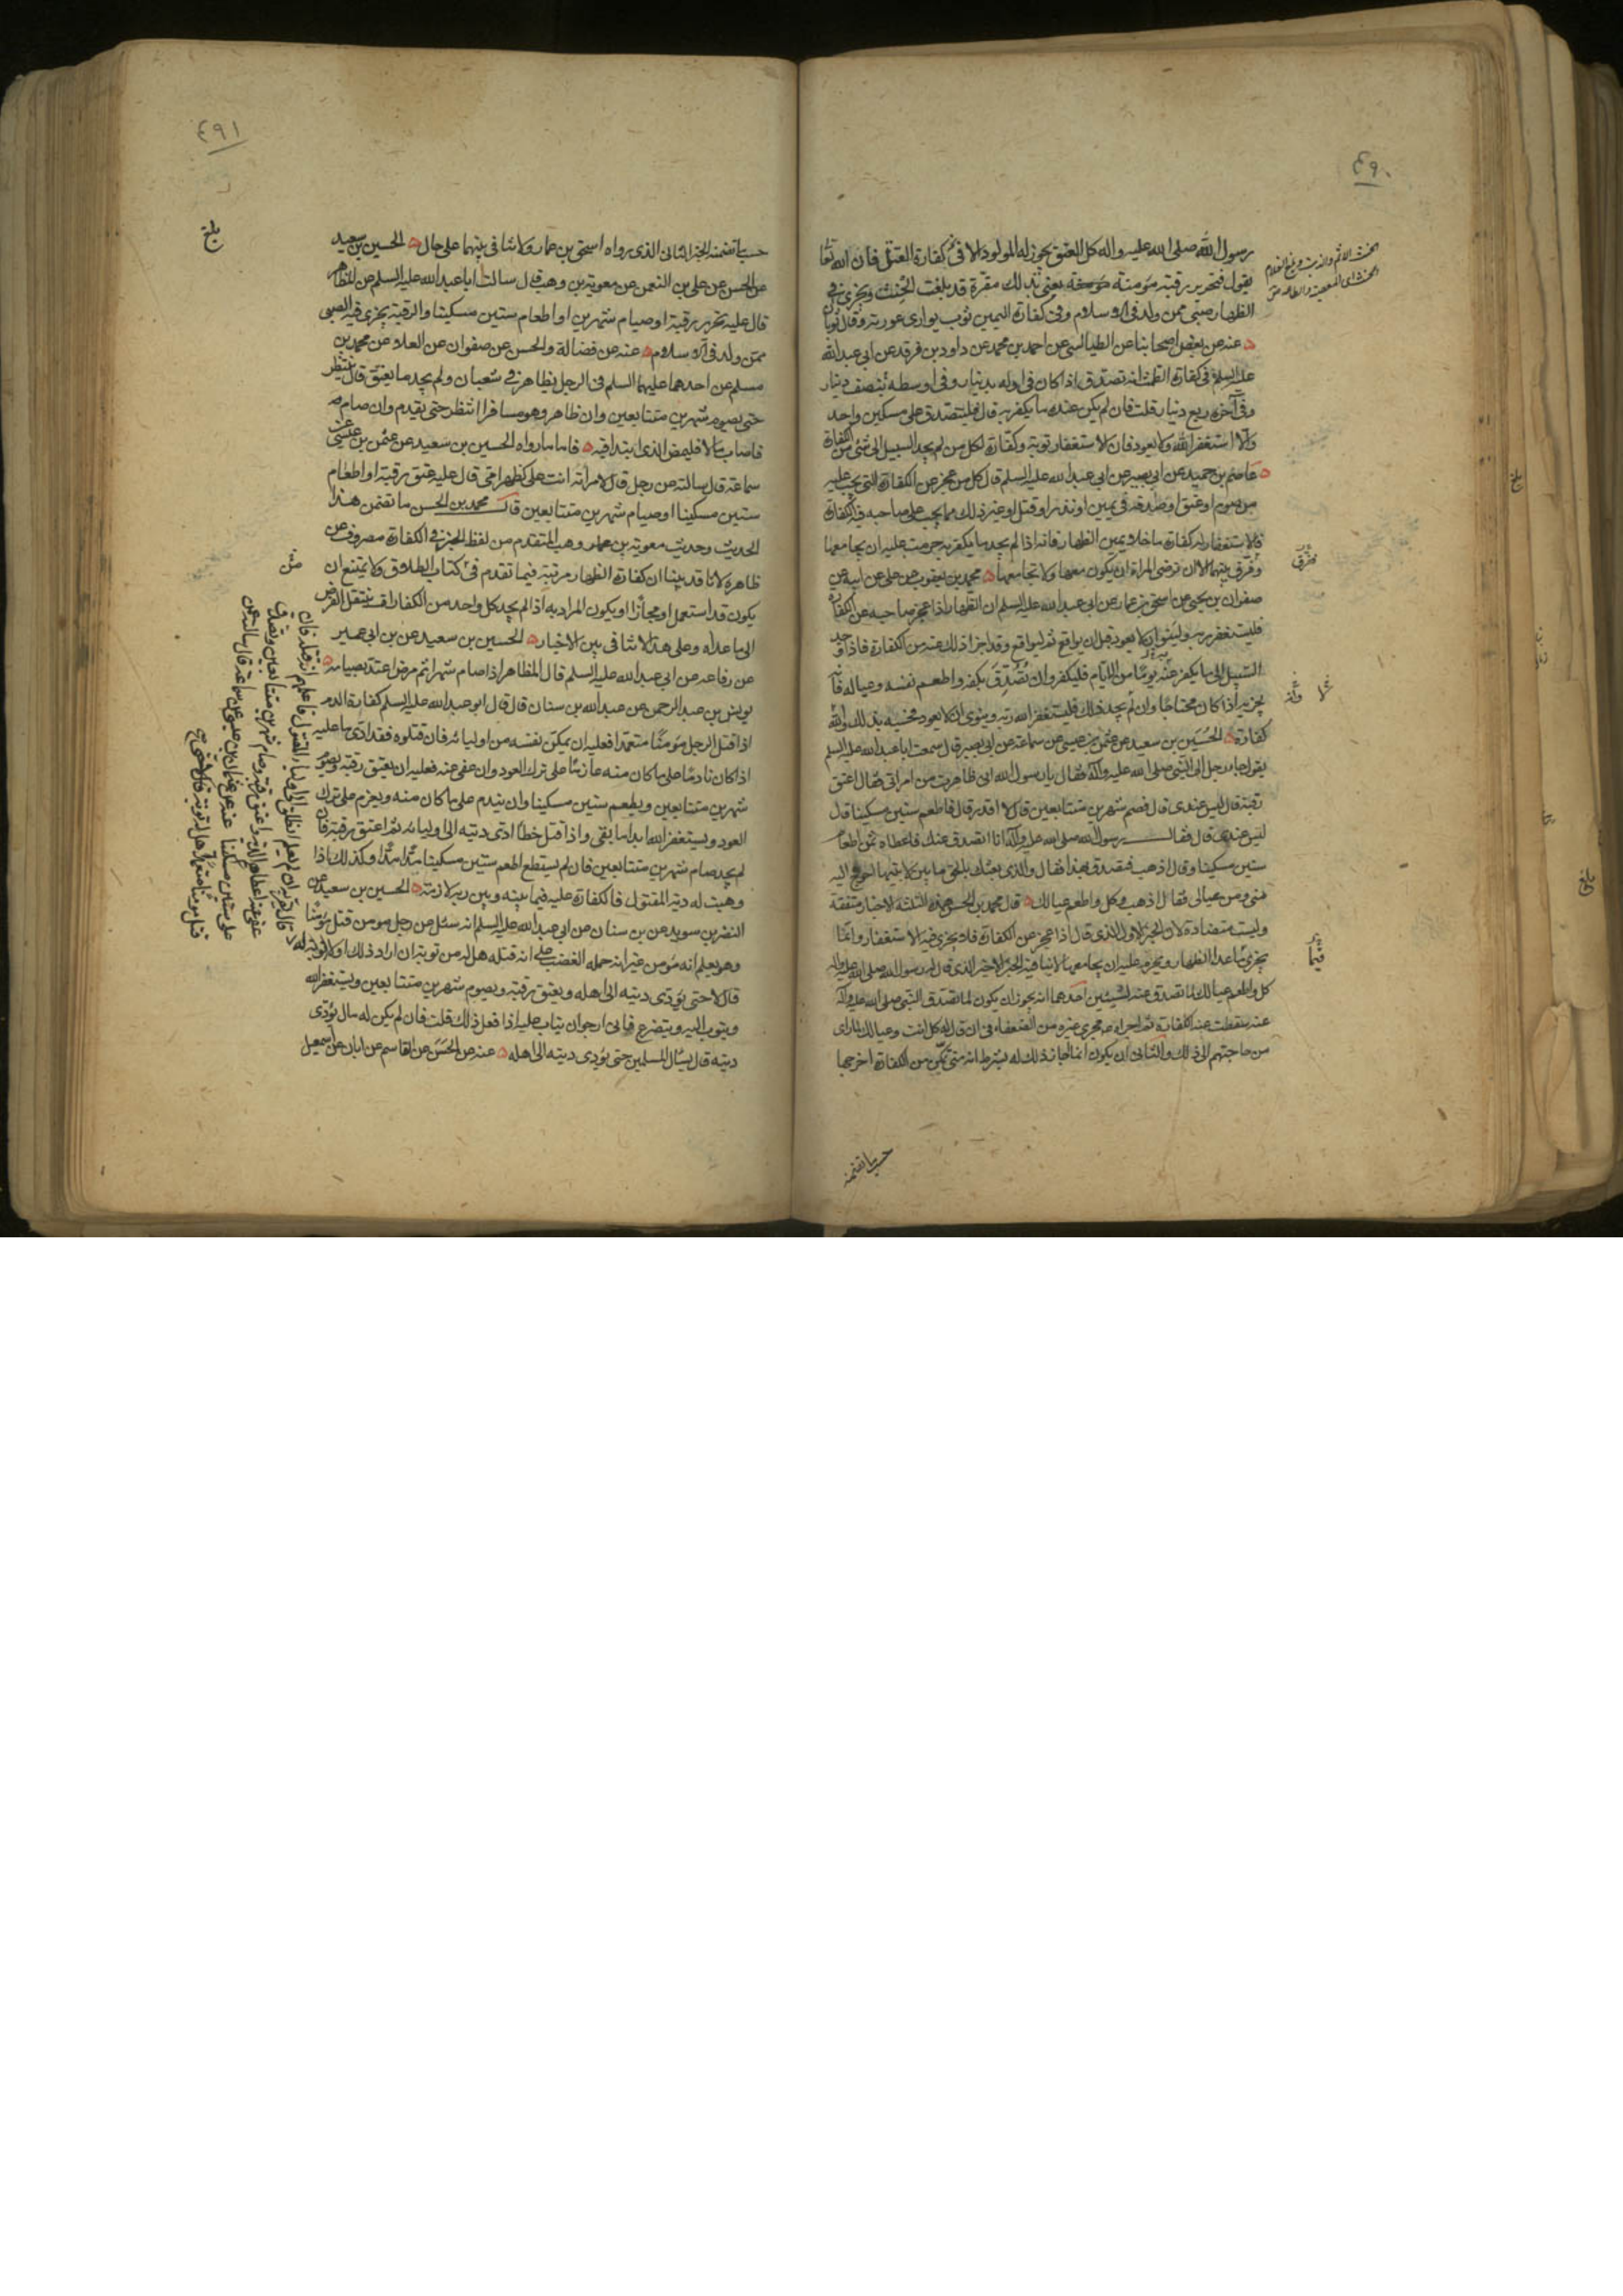 ٤٩٠
رسول الله صلى الله عليه واله كل العتق يجوز له المولود الا في كفارة القتل فان الله تعالى
يقول فتحرير رقبة مؤمنة يعني بذلك مقرة قد بلغت الحنث ويجزي في
الظهار صبي ممن ولد في الاسلام وفي كفارة اليمين ثوب يواري عورته وقال ثوبان
عنه عن بعض اصحابنا عن الطيالسي عن احمد بن محمد عن داود بن فرقد عن ابي عبد الله
عليه السلم في كفارة الطمث انه تصدق اذا كان في اوله بدينار وفي اوسطه بنصف دينار
وفي آخره ربع دينار قلت فان لم يكن عنده ما يكفر به قال فليتصدق على مسكين واحد
والا استغفر الله ولا يعود فان الاستغفار توبة وكفارة لكل من لم يجد السبيل الى شئ من الكفارة
عاصم بن حميد عن ابي بصير عن ابي عبد الله عليه السلم قال كل من عجز عن الكفارة التي يجب عليه
من صوم او عتق او صدقة في يمين او نذر او قتل او غير ذلك مما يجب على صاحبه فيه الكفارة
فالاستغفار له كفارة ما خلا يمين الظهار فانه اذا لم يجد ما يكفر به حرمت عليه ان يجامعها
وفرق بينهما الا ان ترضى المراة ان يكون معها ولا يجامعها محمد بن يعقوب عن علي عن ابيه عن
صفوان بن يحيى عن اسحق بن عمار عن ابي عبد الله عليه السلم ان الظهار اذا عجز صاحبه عن الكفارة
فليستغفر ربه ولينو ان لا يعود قبل ان يواقع ثم ليواقع وقد اجزا ذلك عنه من الكفارة فاذا وجد
السبيل الى ما يكفر عنه يوما من الايام فليكفر وان تصدق بكفه واطعم نفسه وعياله فانه
يجزيه اذا كان محتاجا وان لم يجد ذلك فليستغفر الله ربه وينوي ان لا يعود فحسبه بذلك والله
كفارة الحسين بن سعيد عن عثمن بن عيسى عن سماعة عن ابي بصير قال سمعت ابا عبد الله عليه السلم
يقول جاء رجل الى النبي صلى الله عليه واله فقال يا رسول الله اني ظاهرت من امراتي فقال اعتق
رقبة قال ليس عندي قال فصم شهرين متتابعين قال لا اقدر قال فاطعم ستين مسكينا قال
ليس عندي قال فقال رسول الله صلى الله عليه واله انا اتصدق عنك فاعطاه ثمن اطعام
ستين مسكينا وقال اذهب فتصدق بهذا فقال والذي بعثك بالحق ما بين لابتيها احوج اليه
مني ومن عيالي فقال اذهب وكل واطعم عيالك قال محمد بن الحسن هذه الثلثة الاخبار متفقة
وليست متضادة لان الخبر الاول الذي قال اذا عجز عن الكفارة فلا يجزي فيه الاستغفار وانما
يجزي ما عدا الظهار ويحرم عليه ان يجامعها لا ينافيه الخبر الاخير الذي قال له رسول الله صلى الله عليه واله
كل واطعم عيالك لما تصدق عنه لشيئين احدهما انه يجوز ان يكون لما تصدق النبي صلى الله عليه وآله
عنه سقطت عنه الكفارة ثم اجراه مجرى غيره من الضعفاء في ان قال له كل انت وعيالك لما راى
من حاجتهم الى ذلك والثاني ان يكون انما اجاز ذلك له بشرط انه متى تمكن من الكفارة اخرجها
حسب ما تضمنه
٤٩١
بلغ
حسب ما تضمنه الخبر الثاني الذي رواه اسحق بن عمار ولا تنافي بينهما على حال الحسين بن سعيد
عن الحسن عن علي بن النعمن عن معوية بن وهب قال سالت ابا عبد الله عليه السلم عن المظاهر
قال عليه تحرير رقبة او صيام شهرين او اطعام ستين مسكينا والرقبة يجزي فيه الصبي
ممن ولد في الاسلام عنه عن فضالة والحسن عن صفوان عن العلاء عن محمد بن
مسلم عن احدهما عليهما السلم في الرجل يظاهر في شعبان ولم يجد ما يعتق قال ينتظر
حتى يصوم شهرين متتابعين وان ظاهر وهو مسافر انتظر حتى يقدم وان صام
فاصاب مالا فليمض الذي ابتدا فيه فاما ما رواه الحسين بن سعيد عن عثمن بن عيسى عن
سماعة قال سالته عن رجل قال لامراته انت علي كظهر امي قال عليه عتق رقبة او اطعام
ستين مسكينا او صيام شهرين متتابعين قال محمد بن الحسن ما تضمن هذا
الحديث وحديث معوية بن وهب المتقدم من لفظ الخبر في الكفارة مصروف عن
ظاهره لانا قد بينا ان كفارة الظهار مرتبة فيما تقدم في كتاب الطلاق ولا يمتنع ان
يكون قد استعمل او مجازا او يكون المراد به اذا لم يجد كل واحد من الكفارات ينتقل الفرض
الى ما عداه وعلى هذا لا تنافي بين الاخبار الحسين بن سعيد عن بن ابي عمير
عن رفاعة عن ابي عبد الله عليه السلم قال المظاهر اذا صام شهرا ثم مرض اعتد بصيامه
يونس بن عبد الرحمن عن عبد الله بن سنان قال قال ابو عبد الله عليه السلم كفارة الدم
اذا قتل الرجل مؤمنا متعمدا فعليه ان يمكن نفسه من اوليائه فان قتلوه فقد ادى ما عليه
اذا كان نادما على ما كان منه عازما على ترك العود وان عفى عنه فعليه ان يعتق رقبة ويصوم
شهرين متتابعين ويطعم ستين مسكينا وان يندم على ما كان منه ويعزم على ترك
العود ويستغفر الله ابدا ما بقي واذا قتل خطا ادى ديته الى اوليائه ثم اعتق رقبة فان
لم يجد صام شهرين متتابعين فان لم يستطع اطعم ستين مسكينا مدا مدا وكذلك اذا
وهبت له دية المقتول فالكفارة عليه فيما بينه وبين ربه لازمة الحسين بن سعيد عن
النضر بن سويد عن بن سنان عن ابي عبد الله عليه السلم انه سئل عن رجل مومن قتل مؤمنا
وهو يعلم انه مؤمن غير انه حمله الغضب على انه قتله هل له من توبة ان اراد ذلك او لا توبة له
قال لا حتى يؤدي ديته الى اهله ويعتق رقبة ويصوم شهرين متتابعين ويستغفر الله
ويتوب اليه ويتضرع فاني ارجو ان يتاب عليه اذا فعل ذلك قلت فان لم يكن له مال يؤدي
ديته قال يسأل المسلمين حتى يؤدي ديته الى اهله عنه عن الحسن عن القاسم عن ابان عن اسمعيل